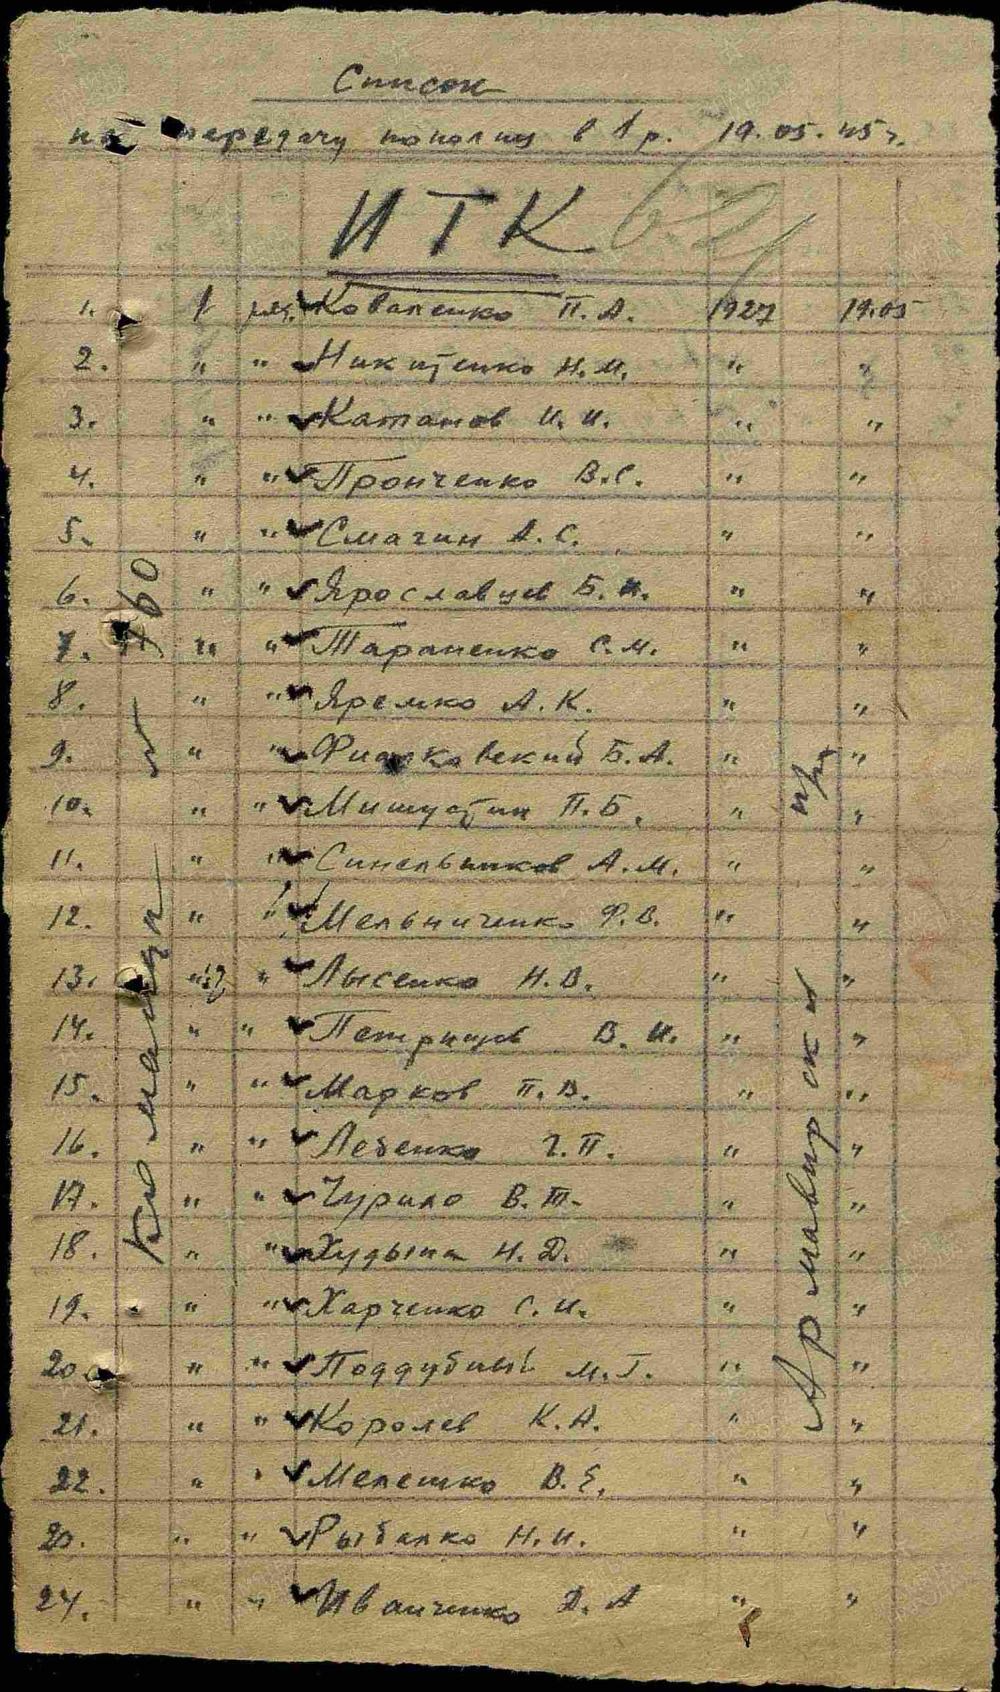 Список
на передачу пополнц в 1 р. 19.05.45 г.
ИТК 62
1. 1 ряд. Коваленко П.А. 1927 19.05
2. " " Никитенко Н.М. " "
3. " " Катанов И.И. " "
4. " " Пронченко В.С. " "
5. " " Смагин А.С. " "
6. " " Ярославцев Б.И. " "
7. " " Тараненко С.М. " "
8. " " Яремко А.К. " "
9. " " Фиалковский Б.А. " "
10. " " Мишустин П.Б. " "
11. " " Синельников А.М. " "
12. " " Мельниченко Ф.В. " "
13. " " Лысенко Н.В. " "
14. " " Петрищев В.И. " "
15. " " Марков П.В. " "
16. " " Лебенко Г.П. " "
17. " " Чурило В.Т. " "
18. " " Худына Н.Д. " "
19. " " Харченко С.И. " "
20. " " Поддубный М.Г. " "
21. " " Королев К.А. " "
22. " " Мелешко В.Е. " "
20. " " Рыбалко Н.И. " "
24. " " Иванченко Д.А " "
760
Армавирский